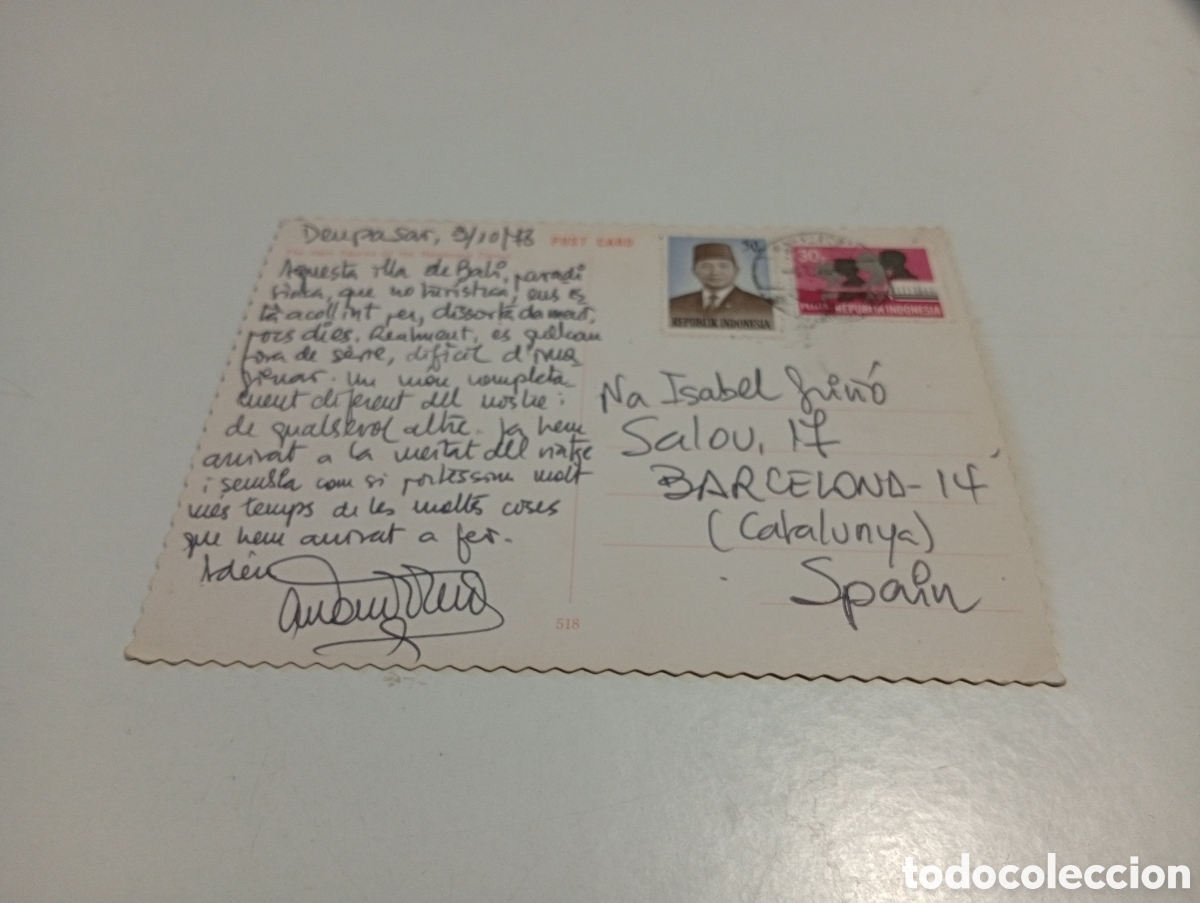 Denpasar, 9/10/78
POST CARD
Aquesta illa de Bali, paradi
síaca, que no turística, ens es
tà acollint per, dissortadament,
pocs dies. Realment, és quelcom
fora de sèrie, difícil d'ima
ginar. Un món completa
ment diferent del nostre i
de qualsevol altre. Ja hem
arrivat a la meitat del viatge
i sembla com si portéssim molt
més temps de les moltes coses
que hem arrivat a fer.
Adéu
518
50
REPUBLIK INDONESIA
30
REPUBLIK INDONESIA
Na Isabel
Salou, 17
BARCELONA-14
(Catalunya)
Spain
todocoleccion